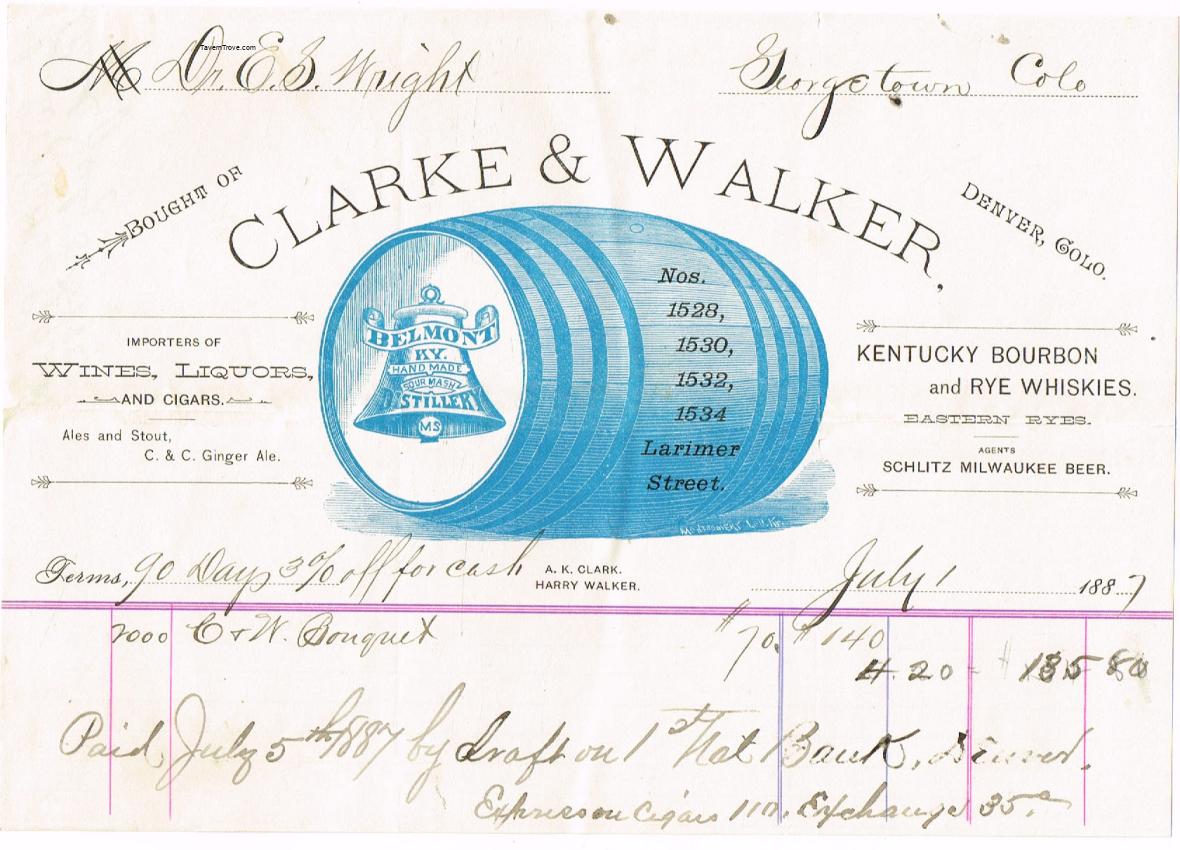 TavernTrove.com
M Dr. E. S. Wright
Georgetown Colo
BOUGHT OF
CLARKE & WALKER,
DENVER, COLO.
IMPORTERS OF
WINES, LIQUORS,
AND CIGARS.
Ales and Stout,
C. & C. Ginger Ale.
BELMONT
KY.
HAND MADE
SOUR MASH
DISTILLERY
MS
Nos.
1528,
1530,
1532,
1534
Larimer
Street.
KENTUCKY BOURBON
and RYE WHISKIES.
EASTERN RYES.
AGENTS
SCHLITZ MILWAUKEE BEER.
Terms, 90 Days 3% off for cash
A. K. CLARK.
HARRY WALKER.
July 1 1887
2000 C & W. Bouquet $70. $140
4.20 - $135 80
Paid July 5th 1887 by draft on 1st Nat Bank, Denver.
Express on Cigars 1 10. Exchange 35.c